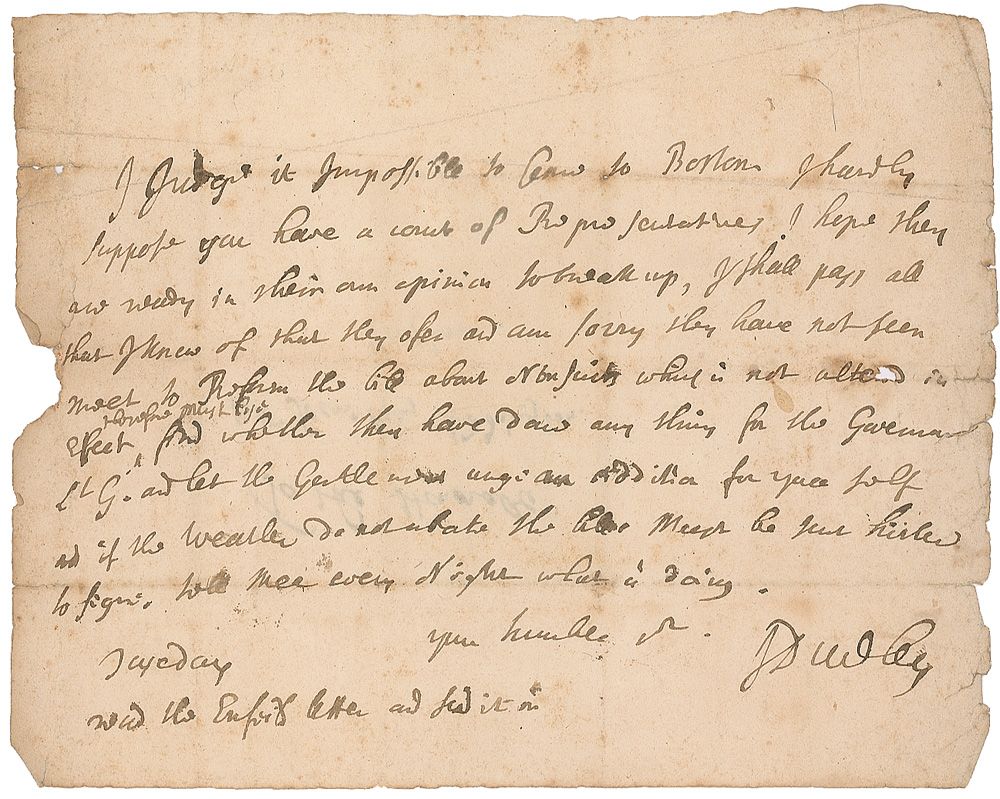 I Judge it Impossible to Come to Boston I hardly
suppose you have a court of Representatives I hope they
are ready in their own opinion to break up, I shall pass all
that I knew of that they ofer and am sorry they have not seen
meet to Reform the bill about which is not altered in
therefore must
Efect, find whether they have done any thing for the Governour
Lt G. and let the Gentlemen urge an Addition for your self
and if the Weather do not abate the bills Must be sent hither
to signe. tell mee every Night what is doing.
your humble sr.
JDudley
read the letter and send it in